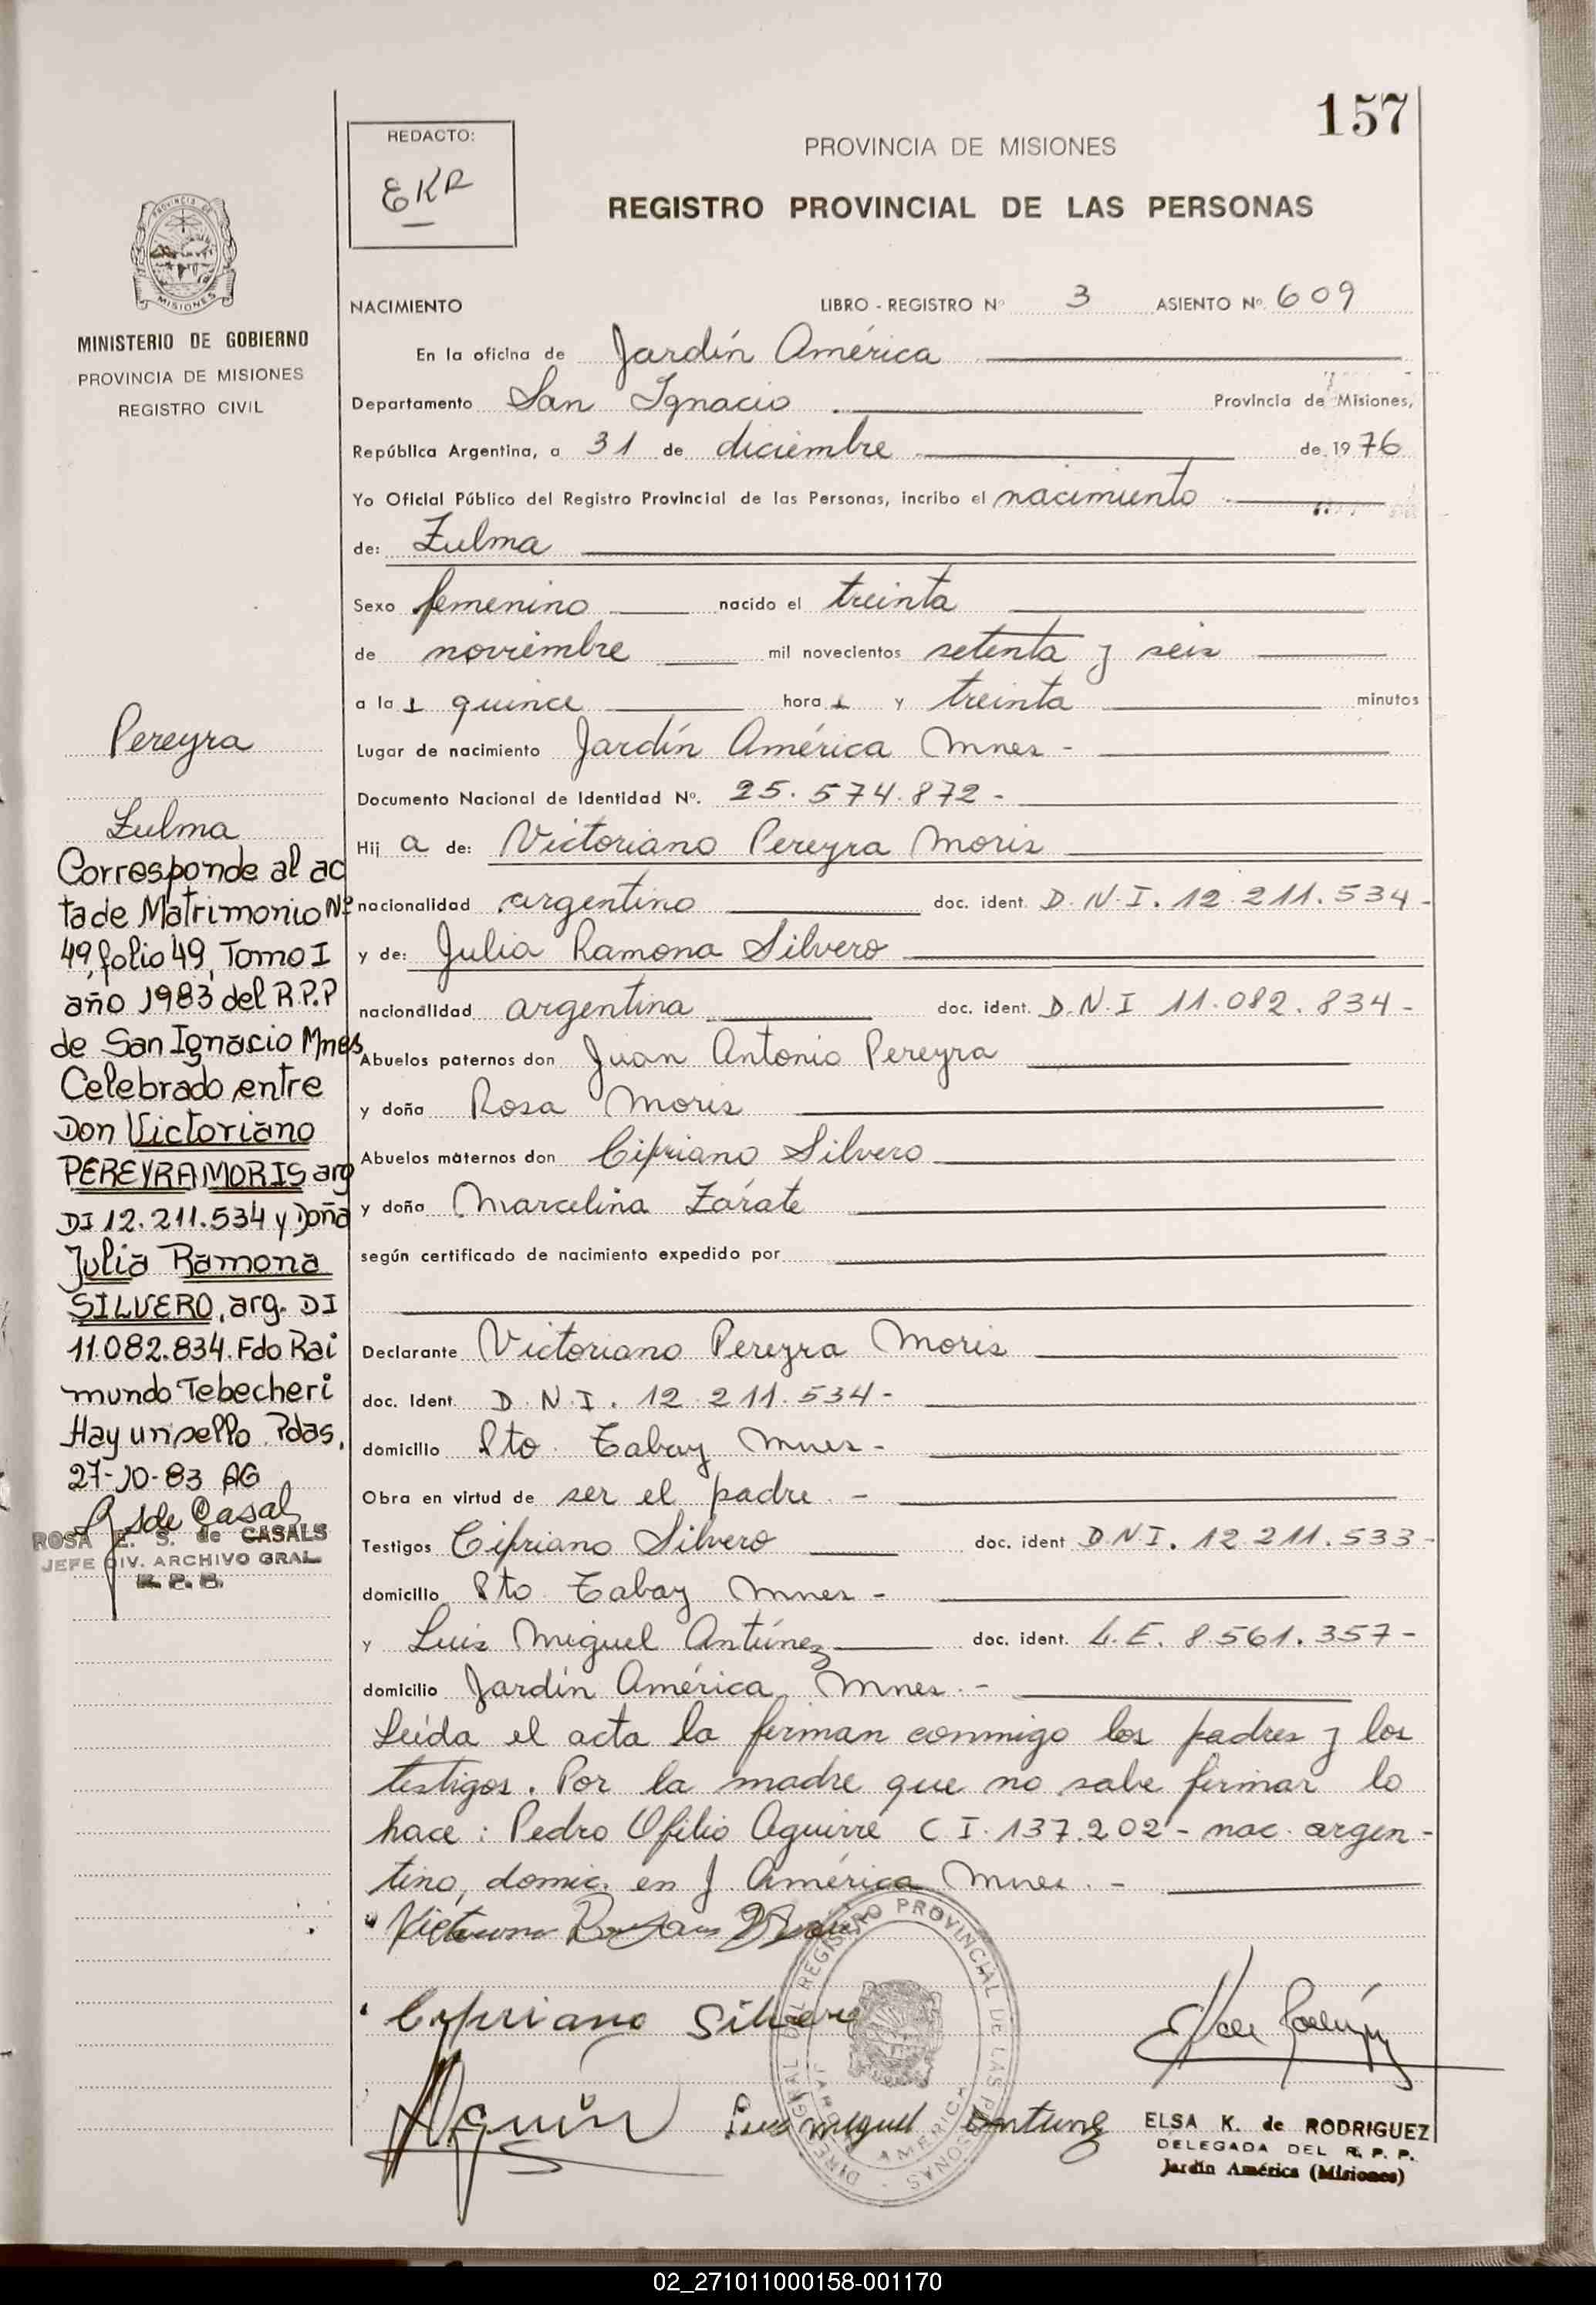 157
REDACTO:
EKR
PROVINCIA DE MISIONES
REGISTRO PROVINCIAL DE LAS PERSONAS
PROVINCIA DE
MISIONES
MINISTERIO DE GOBIERNO
PROVINCIA DE MISIONES
REGISTRO CIVIL
NACIMIENTO LIBRO - REGISTRO Nº 3 ASIENTO Nº 609
En la oficina de Jardín América
Departamento San Ignacio Provincia de Misiones,
República Argentina, a 31 de diciembre de 1976
Yo Oficial Público del Registro Provincial de las Personas, incribo el nacimiento
de: Zulma
Sexo femenino nacido el treinta
de noviembre mil novecientos setenta y seis
a las quince horas y treinta minutos
Lugar de nacimiento Jardín América Mnes -
Documento Nacional de Identidad Nº. 25.574.872 -
Hija de: Victoriano Pereyra Moris
nacionalidad argentino doc. ident. D.N.I. 12.211.534 -
y de: Julia Ramona Silvero
nacionalidad argentina doc. ident. D.N.I 11.082.834 -
Abuelos paternos don Juan Antonio Pereyra
y doña Rosa Moris
Abuelos maternos don Cipriano Silvero
y doña Marcelina Zárate
según certificado de nacimiento expedido por
Declarante Victoriano Pereyra Moris
doc. Ident. D.N.I. 12.211.534 -
domicilio Pto. Tabay Mnes -
Obra en virtud de ser el padre. -
Testigos Cipriano Silvero doc. ident D.N.I. 12.211.533 -
domicilio Pto. Tabay Mnes -
y Luis Miguel Antúnez doc. ident. L.E. 8.561.357 -
domicilio Jardín América, Mnes. -
Leída el acta la firman conmigo los padres y los
testigos. Por la madre que no sabe firmar lo
hace: Pedro Ofilio Aguirre C I. 137.202 - nac. argen-
tino, domic. en J América Mnes. -
Pereyra
Zulma
Corresponde al ac
ta de Matrimonio Nº
49, folio 49, Tomo I
año 1983 del R.P.P
de San Ignacio Mnes
Celebrado entre
Don Victoriano
PEREYRA MORIS arg
DI 12.211.534 y Doña
Julia Ramona
SILVERO, arg. DI
11.082.834. Fdo Rai
mundo Tebecheri
Hay un sello. Pdas,
27-10-83 AG
S de Casals
ROSA E. S. de CASALS
JEFE DIV. ARCHIVO GRAL.
R. P. P.
Victoriano
Cipriano Silvero
Luis miguel Antunez
DIREC. GRAL. DEL REGISTRO PROVINCIAL DE LAS PERSONAS
JARDIN AMERICA
ELSA K. de RODRIGUEZ
DELEGADA DEL R. P. P.
Jardín América (Misiones)
02_271011000158-001170